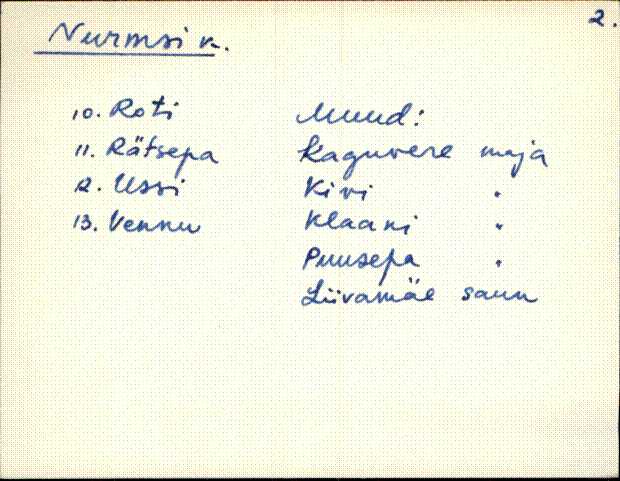 2.
Nurmsi k.
10. Roti
11. Rätsepa
12. Ussi
13. Vennu
Muud:
Kaguvere maja
Kivi "
Klaani "
Puusepa "
Liivamäe saun